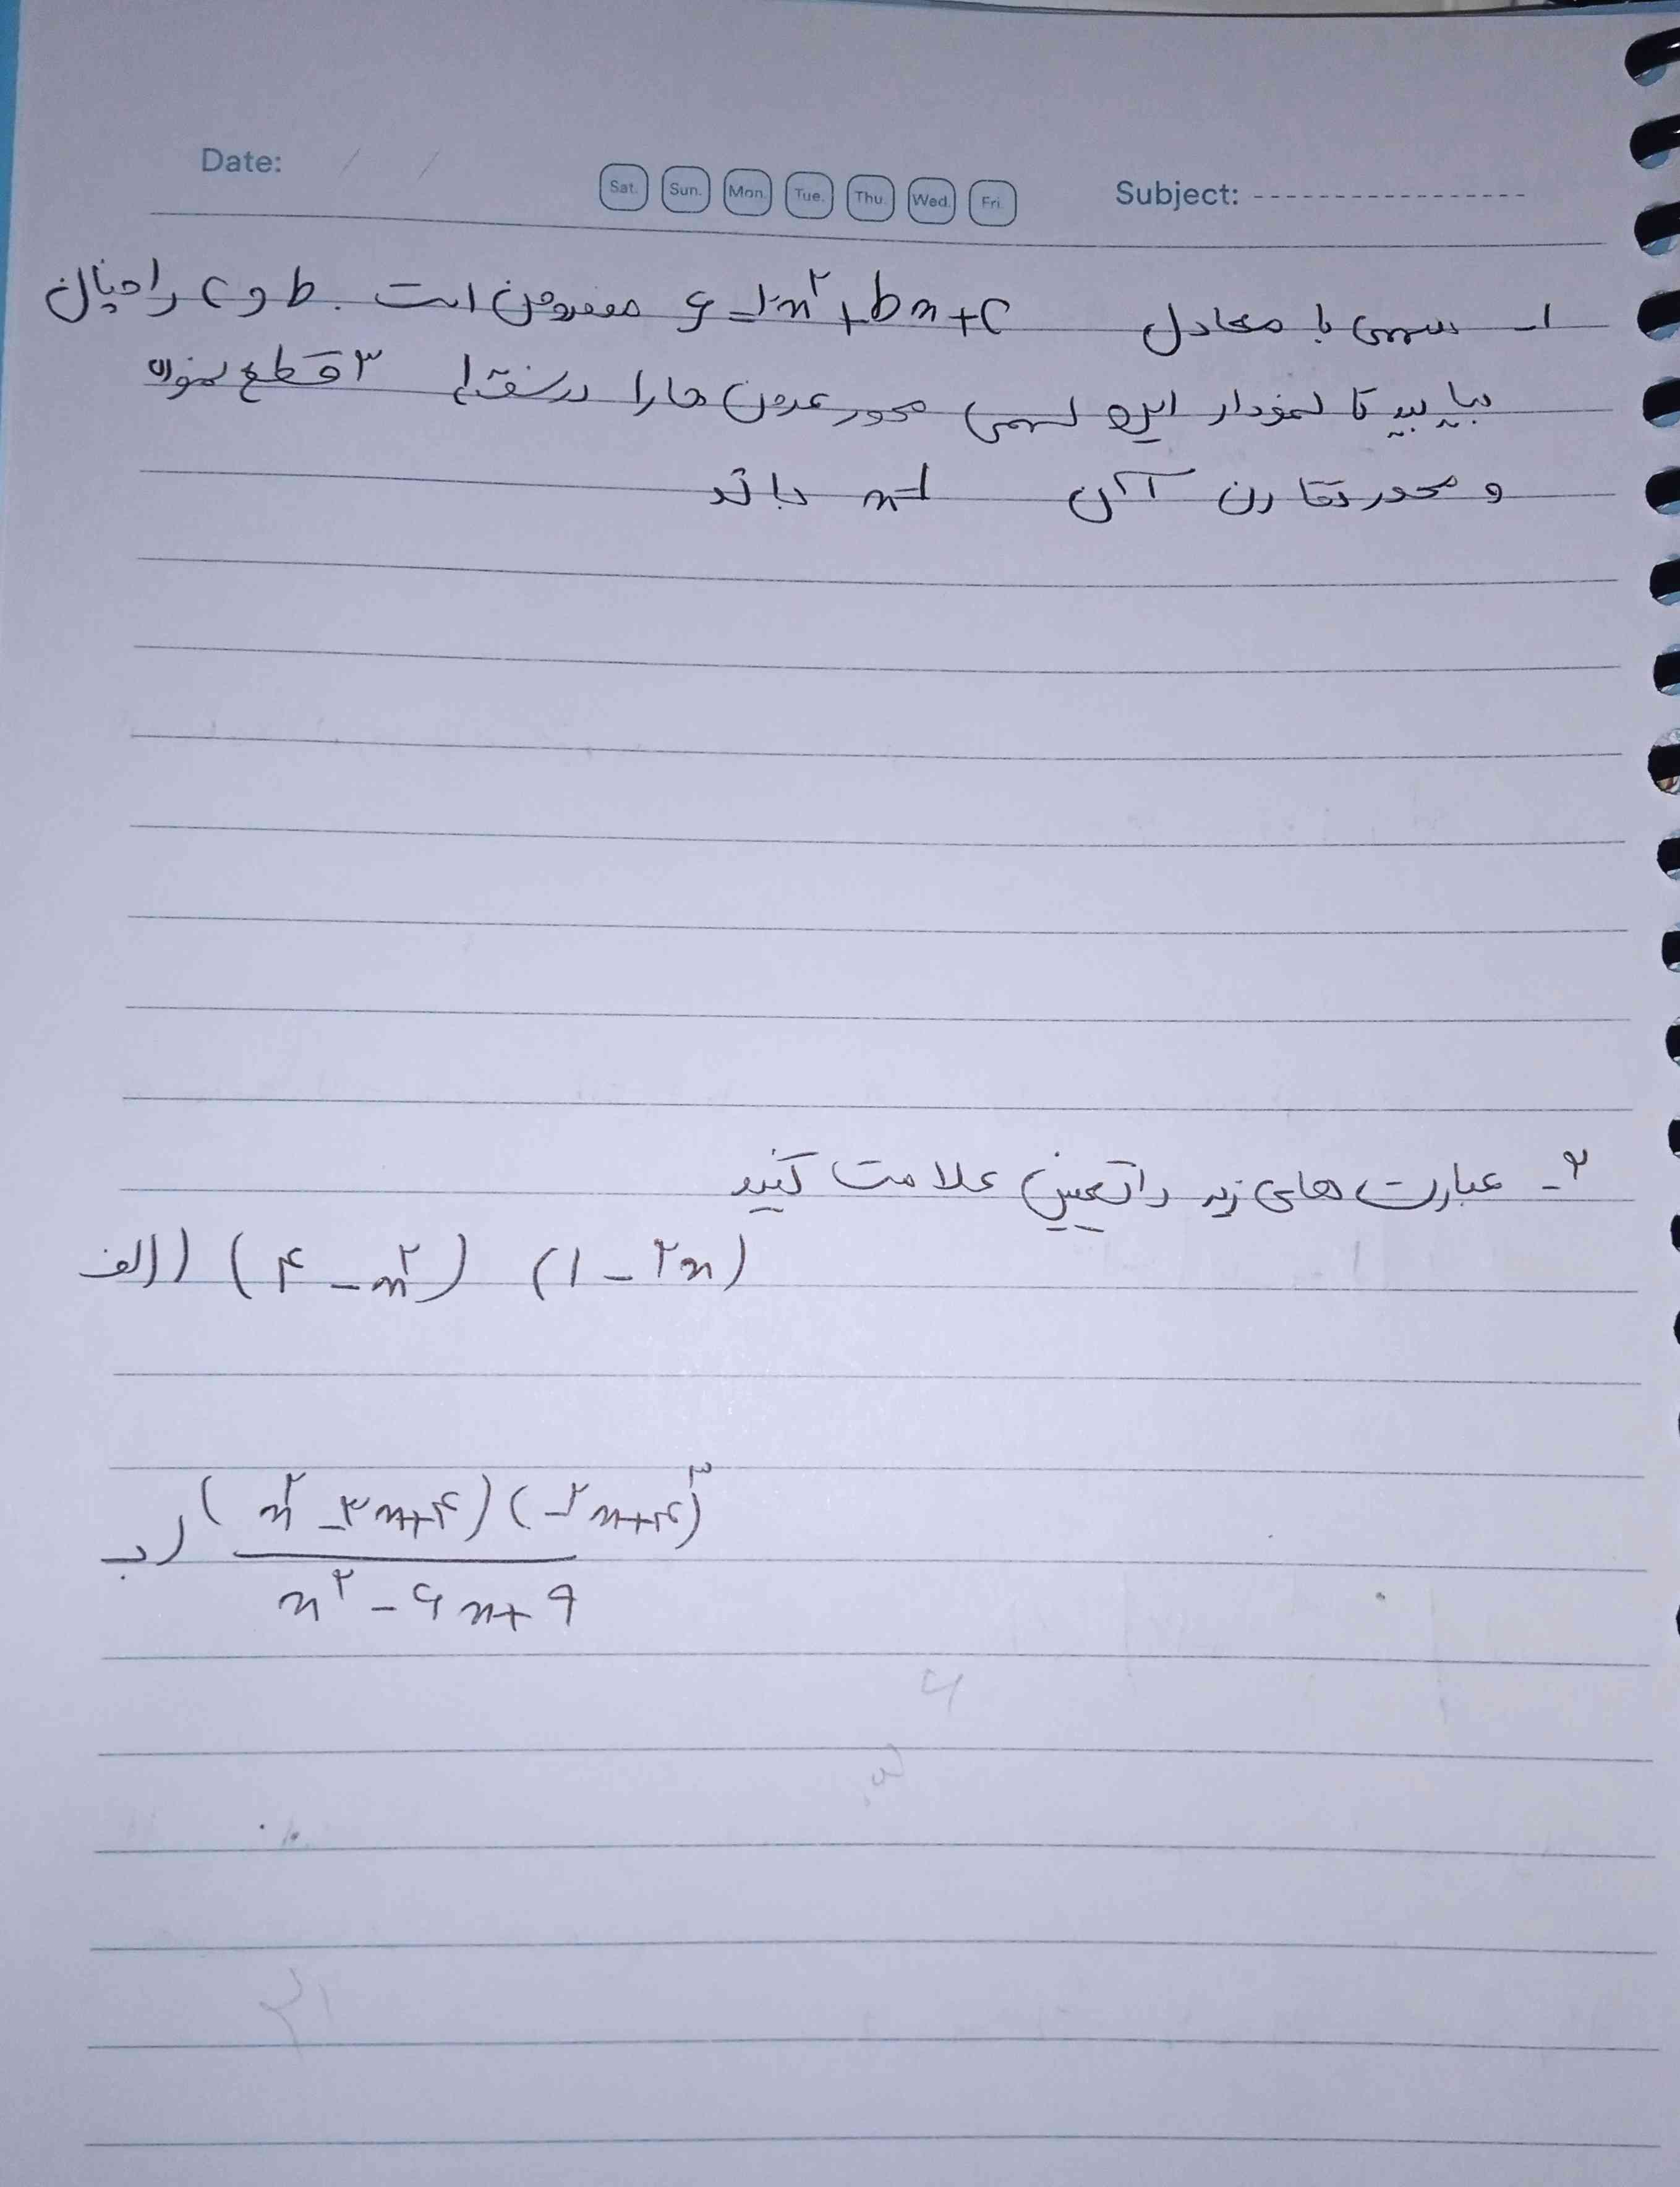 Date: / /
Sat. Sun. Mon. Tue. Thu. Wed. Fri.
Subject:
۱- سهمی با معادل y = ۲x^۲ + bx + c مفروض است. b و c را چنان
بیابید تا نمودار این سهمی محور عرض ها را در نقطه‌ای ۳ قطع نموده
و محور تقارن آن x=1 باشد
۲- عبارت های زیر را تعیین علامت کنید
الف) (۴ - x^۲) (۱ - ۲x)
ب) (x^۲ - ۲x + ۴) (-۲x + ۴)^۳
x^۲ - ۶x + ۹